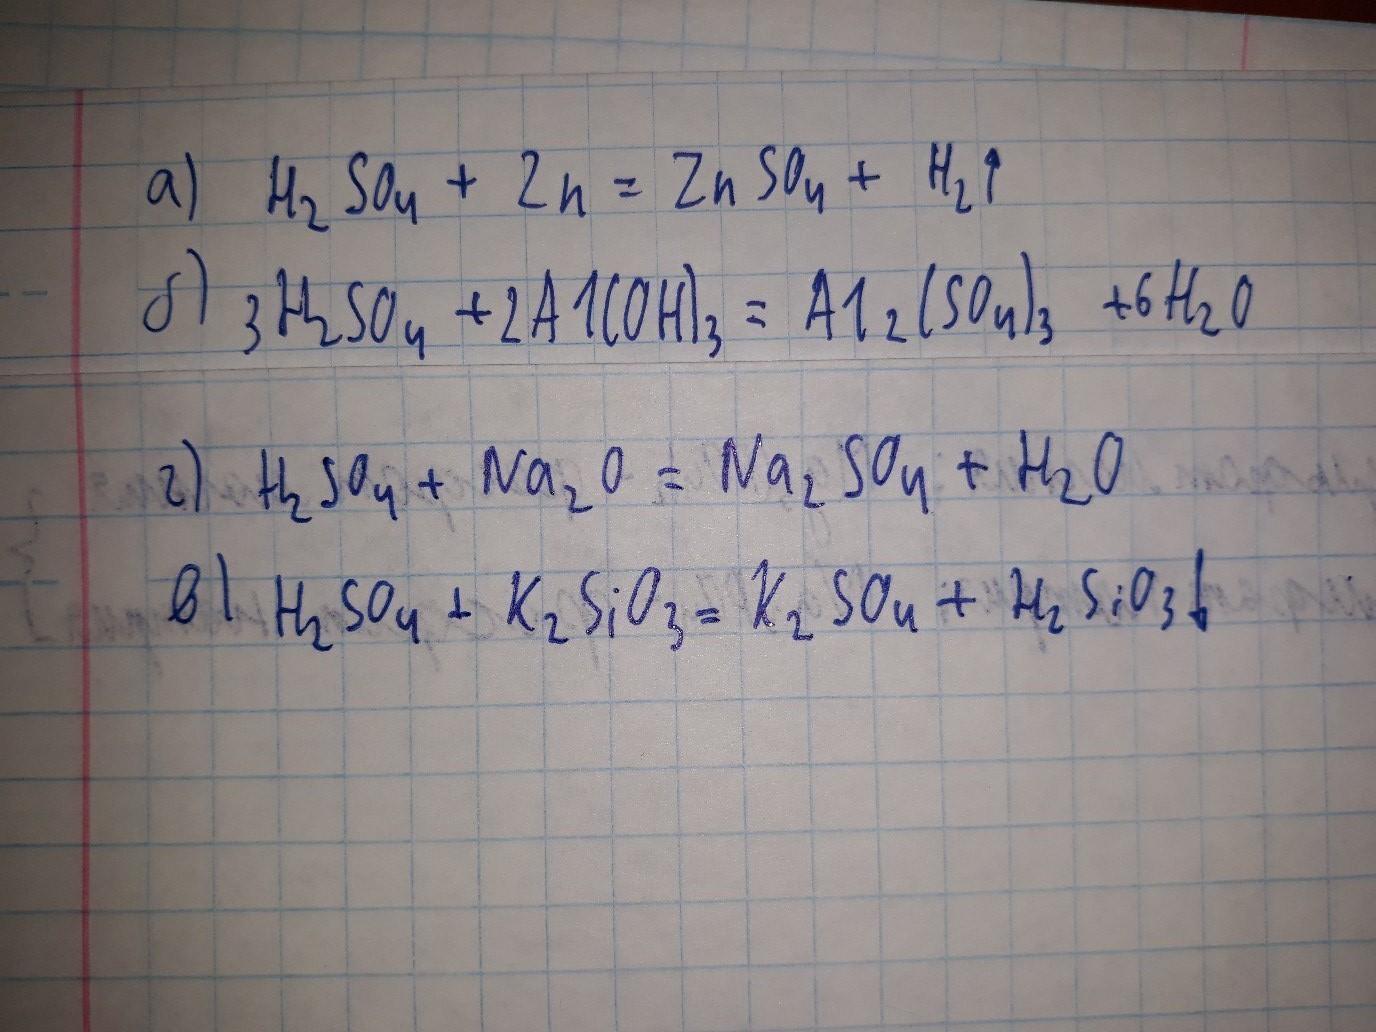 а) H₂SO₄ + Zn = ZnSO₄ + H₂↑
б) 3H₂SO₄ + 2Al(OH)₃ = Al₂(SO₄)₃ + 6H₂O
г) H₂SO₄ + Na₂O = Na₂SO₄ + H₂O
в) H₂SO₄ + K₂SiO₃ = K₂SO₄ + H₂SiO₃↓